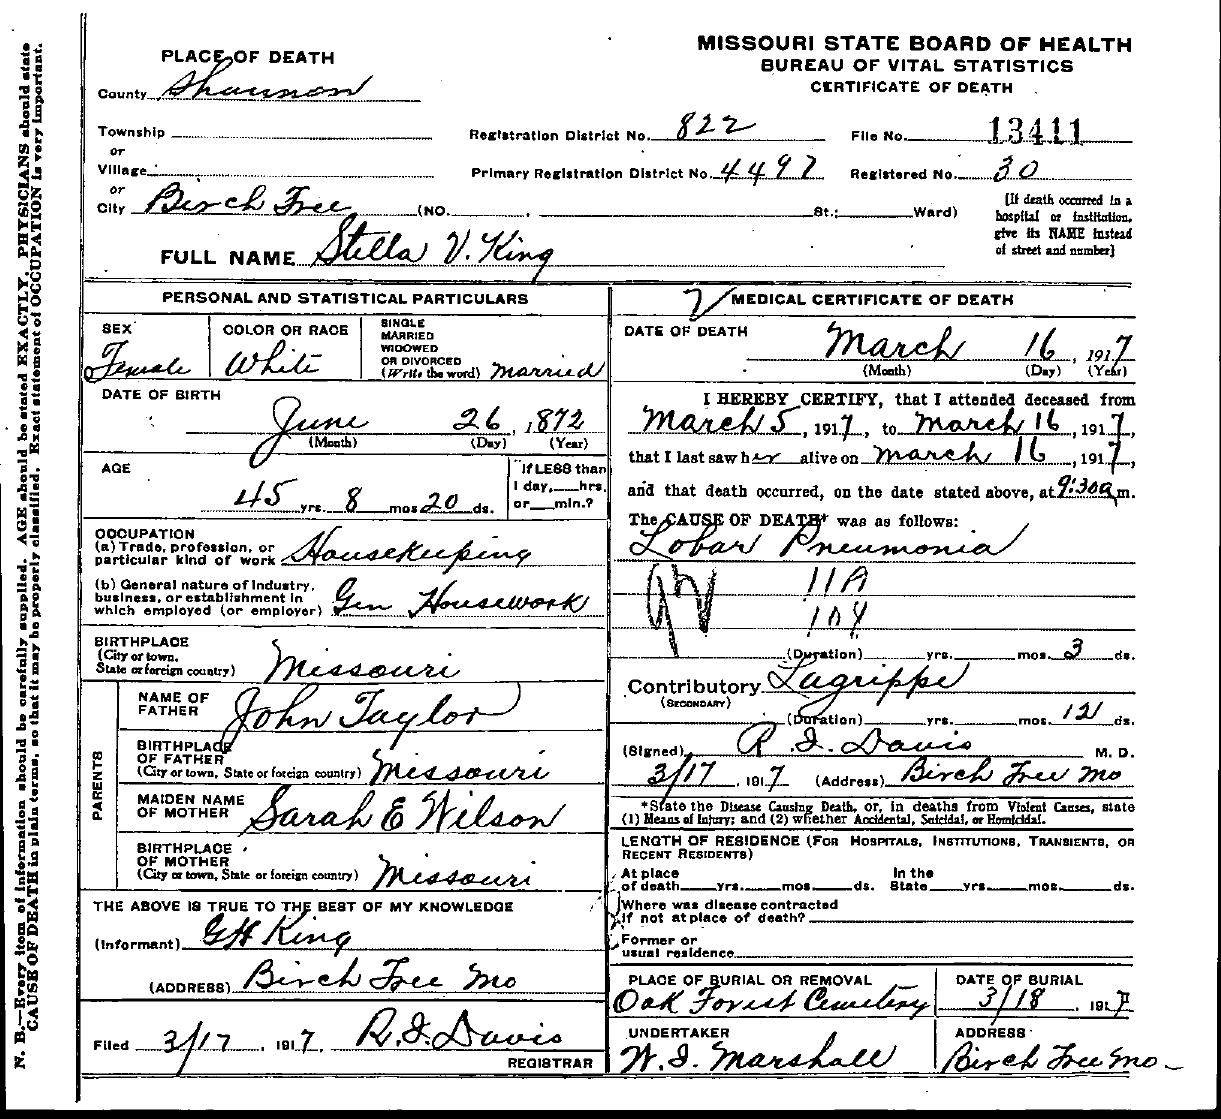 MISSOURI STATE BOARD OF HEALTH
BUREAU OF VITAL STATISTICS
CERTIFICATE OF DEATH
PLACE OF DEATH
County Shannon
Township
or
Village
or
City Birch Tree (NO. St.; Ward)
Registration District No. 822 File No. 13411
Primary Registration District No. 4497 Registered No. 30
[If death occurred in a
hospital or institution,
give its NAME instead
of street and number]
FULL NAME Stella V. King
PERSONAL AND STATISTICAL PARTICULARS
SEX
Female
COLOR OR RACE
White
SINGLE
MARRIED
WIDOWED
OR DIVORCED
(Write the word) married
DATE OF BIRTH
June 26, 1872
(Month) (Day) (Year)
AGE
45 yrs. 8 mos 20 ds.
If LESS than
1 day, hrs.
or min.?
OCCUPATION
(a) Trade, profession, or
particular kind of work Housekeeping
(b) General nature of Industry,
business, or establishment in
which employed (or employer) Gen Housework
BIRTHPLACE
(City or town,
State or foreign country) Missouri
PARENTS
NAME OF
FATHER John Taylor
BIRTHPLACE
OF FATHER
(City or town, State or foreign country) Missouri
MAIDEN NAME
OF MOTHER Sarah E Wilson
BIRTHPLACE
OF MOTHER
(City or town, State or foreign country) Missouri
THE ABOVE IS TRUE TO THE BEST OF MY KNOWLEDGE
(Informant) GH King
(ADDRESS) Birch Tree Mo
Filed 3/17, 1917. R. I. Davis
REGISTRAR
MEDICAL CERTIFICATE OF DEATH
DATE OF DEATH
March 16, 1917
(Month) (Day) (Year)
I HEREBY CERTIFY, that I attended deceased from
March 5, 1917, to March 16, 1917,
that I last saw her alive on March 16, 1917,
and that death occurred, on the date stated above, at 9:30a m.
The CAUSE OF DEATH* was as follows:
Lobar Pneumonia
11A
(Duration) yrs. mos. 3 ds.
Contributory Lagrippe
(SECONDARY)
(Duration) yrs. mos. 12 ds.
(Signed) R. I. Davis M. D.
3/17, 1917 (Address) Birch Tree Mo
*State the Disease Causing Death, or, in deaths from Violent Causes, state
(1) Means of Injury; and (2) whether Accidental, Suicidal, or Homicidal.
LENGTH OF RESIDENCE (FOR HOSPITALS, INSTITUTIONS, TRANSIENTS, OR
RECENT RESIDENTS)
At place In the
of death yrs. mos. ds. State yrs. mos. ds.
Where was disease contracted
if not at place of death?
Former or
usual residence
PLACE OF BURIAL OR REMOVAL
Oak Forest Cemetery
DATE OF BURIAL
3/18, 1917
UNDERTAKER
W. I. Marshall
ADDRESS
Birch Tree Mo
N. B.—Every item of information should be carefully supplied. AGE should be stated EXACTLY. PHYSICIANS should state
CAUSE OF DEATH in plain terms, so that it may be properly classified. Exact statement of OCCUPATION is very important.